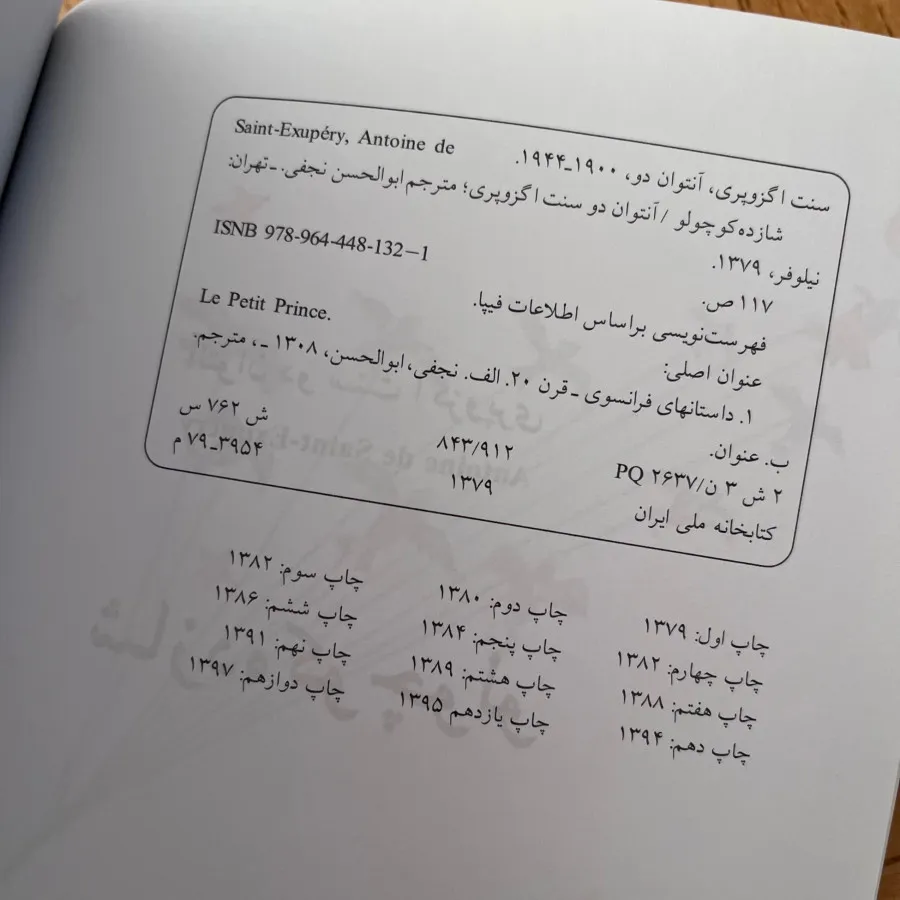 سنت اگزوپری، آنتوان دو، ۱۹۰۰ـ۱۹۴۴. Saint-Exupéry, Antoine de
شازده‌کوچولو / آنتوان دو سنت اگزوپری؛ مترجم ابوالحسن نجفی. ـ تهران:
نیلوفر، ۱۳۷۹.
۱۱۷ ص. ISNB 978-964-448-132-1
فهرست‌نویسی براساس اطلاعات فیپا.
عنوان اصلی: Le Petit Prince.
۱. داستانهای فرانسوی ـ قرن ۲۰. الف. نجفی، ابوالحسن، ۱۳۰۸ ـ، مترجم.
ب. عنوان.
۲ ش ۳ ن/ PQ ۲۶۳۷ ۸۴۳/۹۱۲ ش ۷۶۲ س
کتابخانه ملی ایران ۱۳۷۹ ۳۹۵۴ـ۷۹ م
چاپ اول: ۱۳۷۹ چاپ دوم: ۱۳۸۰ چاپ سوم: ۱۳۸۲
چاپ چهارم: ۱۳۸۲ چاپ پنجم: ۱۳۸۴ چاپ ششم: ۱۳۸۶
چاپ هفتم: ۱۳۸۸ چاپ هشتم: ۱۳۸۹ چاپ نهم: ۱۳۹۱
چاپ دهم: ۱۳۹۴ چاپ یازدهم ۱۳۹۵ چاپ دوازدهم: ۱۳۹۷